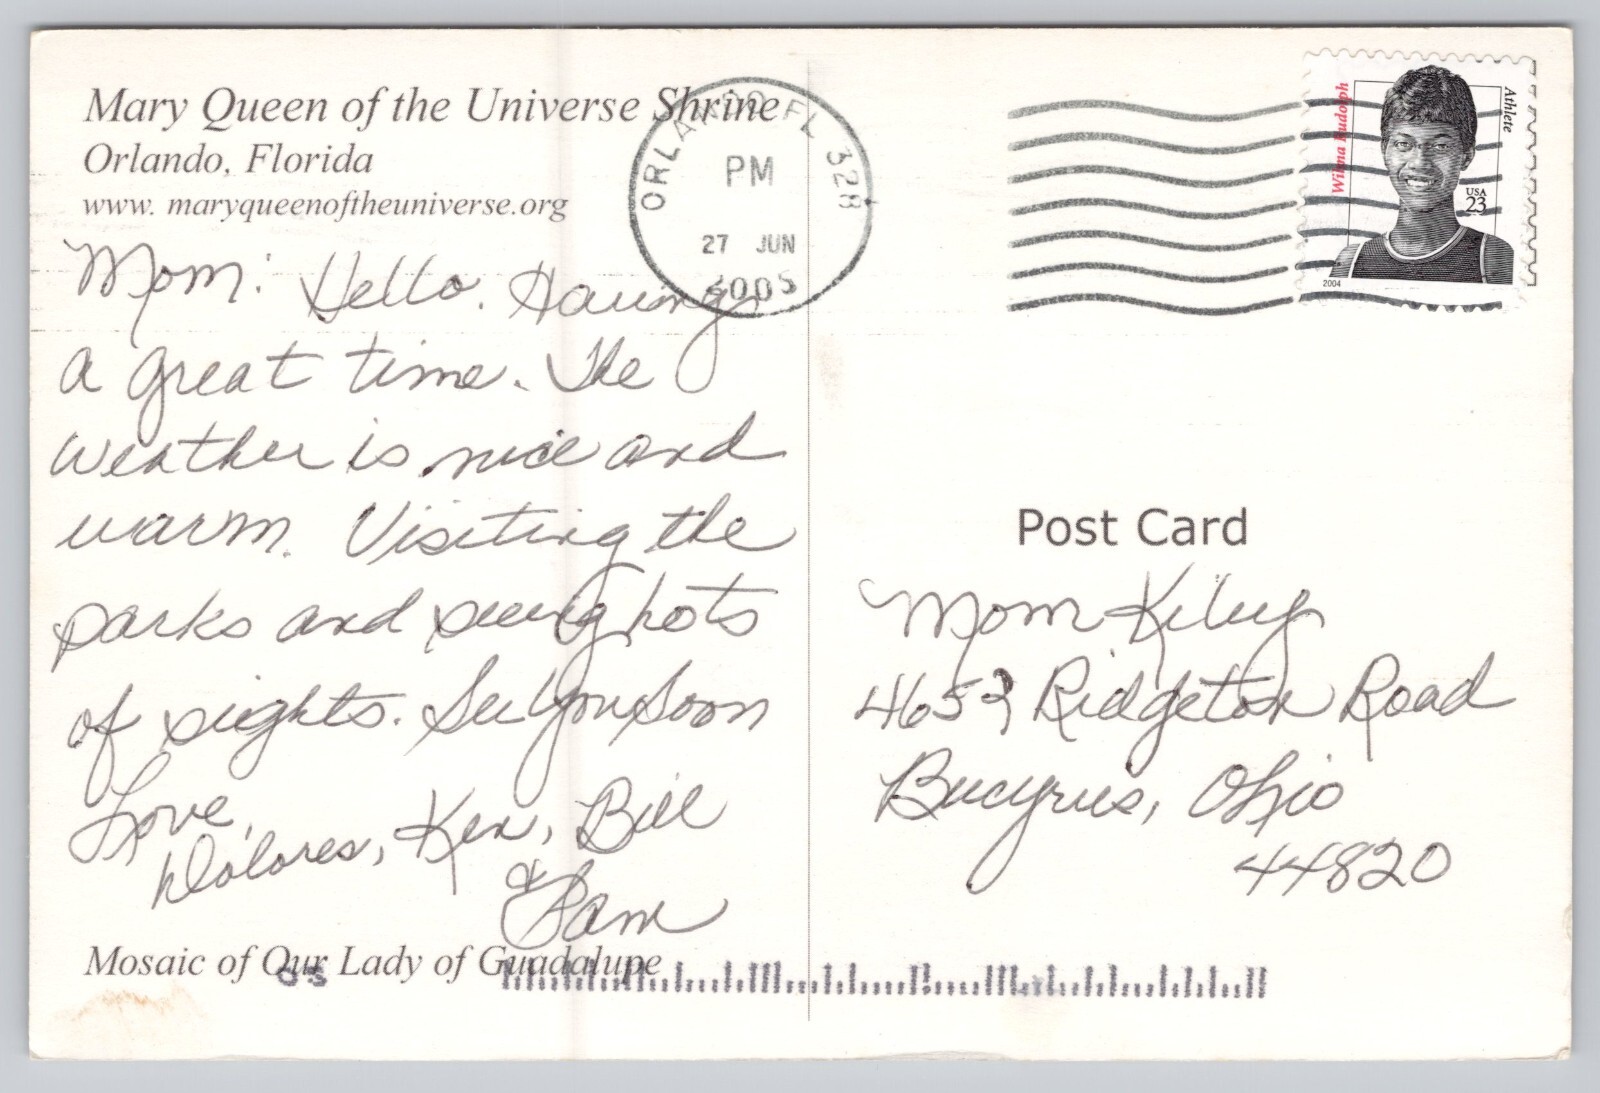 Mary Queen of the Universe Shrine
Orlando, Florida
www. maryqueenoftheuniverse.org
Mom: Hello. Having
a great time. The
weather is nice and
warm. Visiting the
parks and seeing lots
of sights. See you Soon
Love,
Dolores, Ken, Bill
& Pam
Mosaic of Our Lady of Guadalupe
03
ORLANDO FL 328
PM
27 JUN
2005
Wilma Rudolph
Athlete
USA
23
2004
Post Card
Mom Kiley
4653 Ridgeton Road
Bucyrus, Ohio
44820